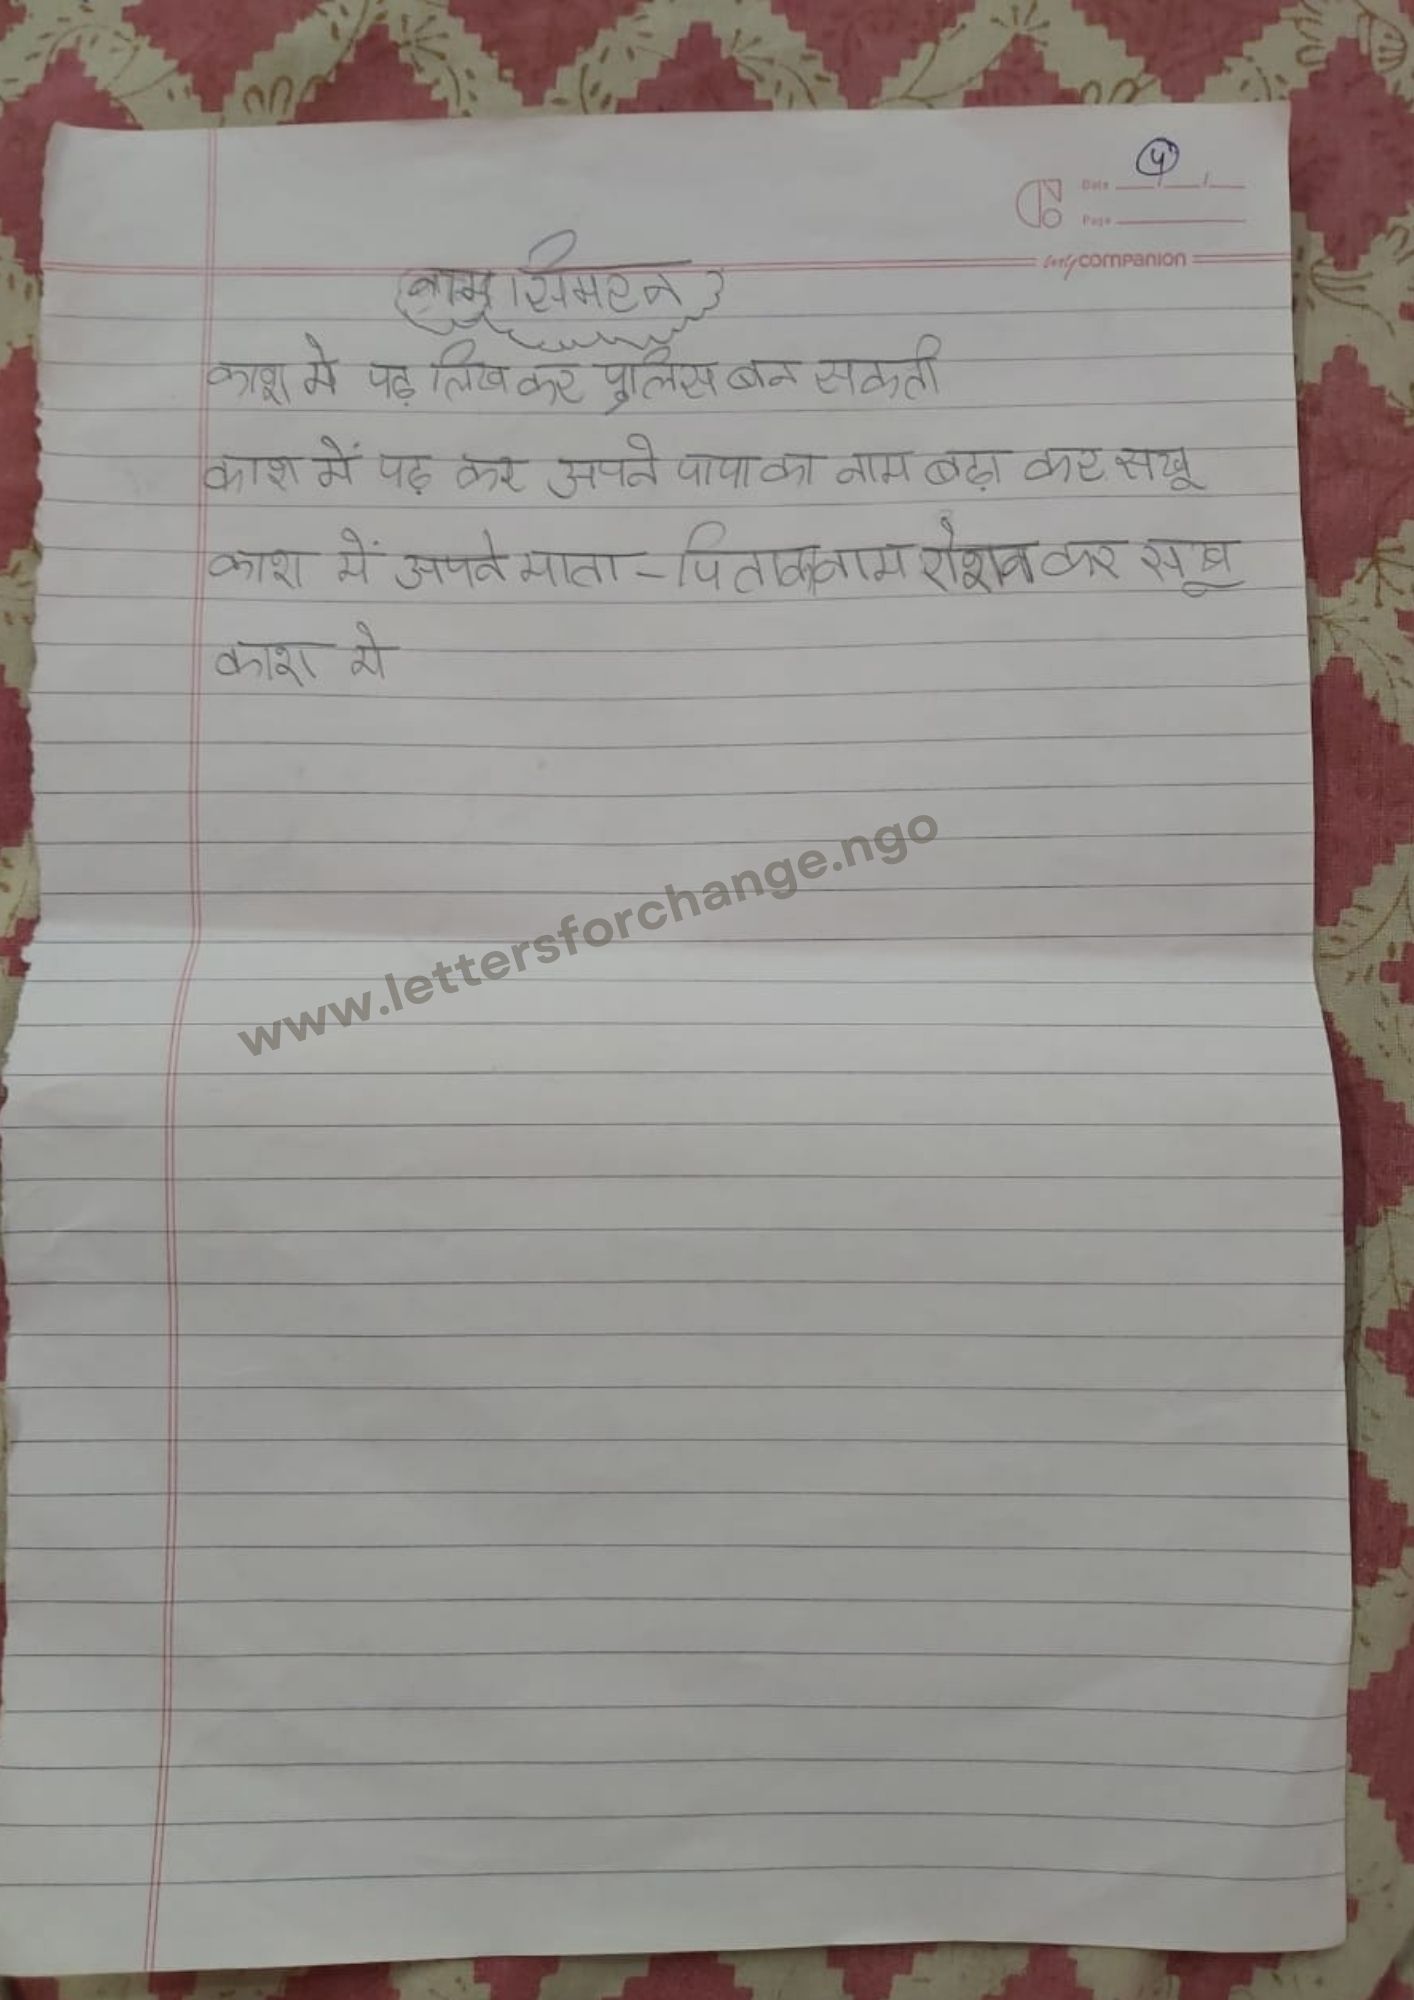 ५
Date
Page
companion
नाम सिमरन
काश मे पढ़ लिख कर पुलिस बन सकती
काश में पढ़ कर अपने पापा का नाम बढ़ा कर सखू
काश में अपने माता - पिता का नाम रोशन कर सखू
काश मे
www.lettersforchange.ngo